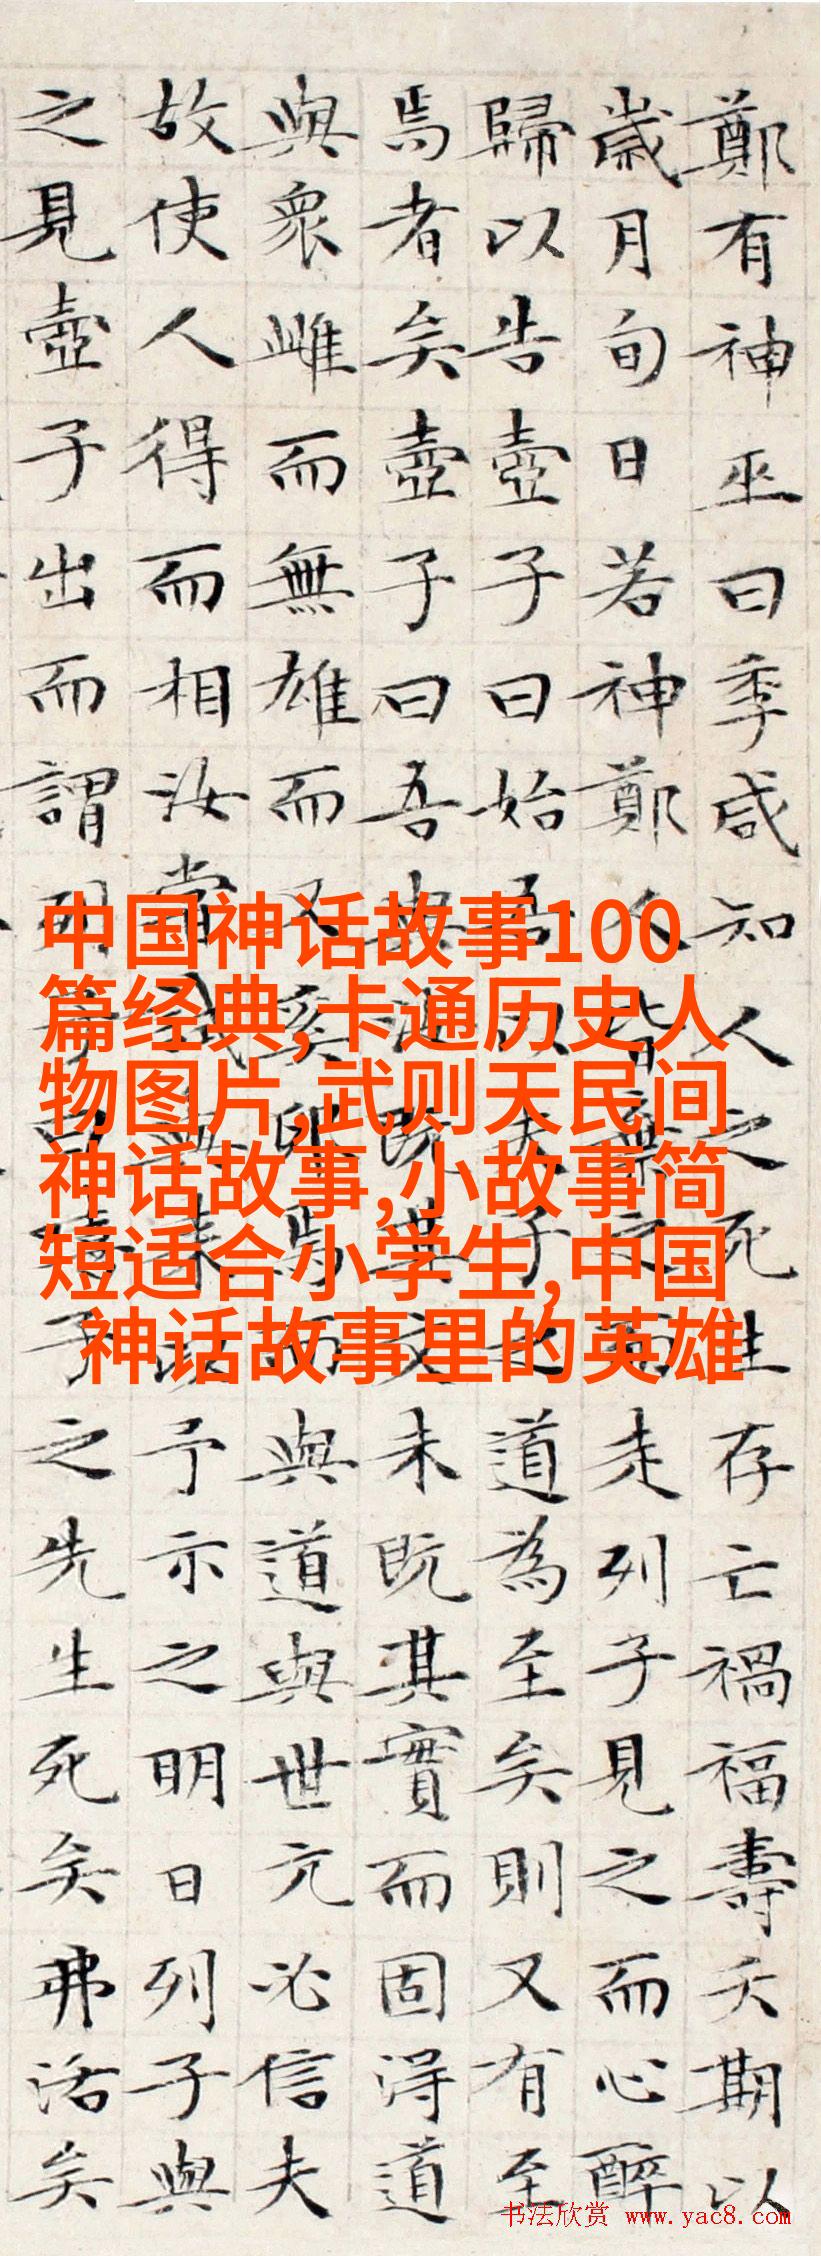 鄭有神巫曰季咸知人之死生存亡禍福壽夭期以
歲月旬日若神鄭人皆棄之而走列子見之而心醉
歸以告壺子曰始吾以夫子之道為至矣則又有至
焉者矣壺子曰吾與汝既其文未既其實而固得道
與眾雌而無雄而又奚卵焉而與道與世亢必信夫
故使人得而相汝嘗試與來以予示之明日列子與
之見壺子出而謂列子曰嘻子之先生死矣弗活矣
中国神话故事100
篇经典,卡通历史人
物图片,武则天民间
神话故事,小故事简
短适合小学生,中国
神话故事里的英雄
书法欣赏 www.yac8.com